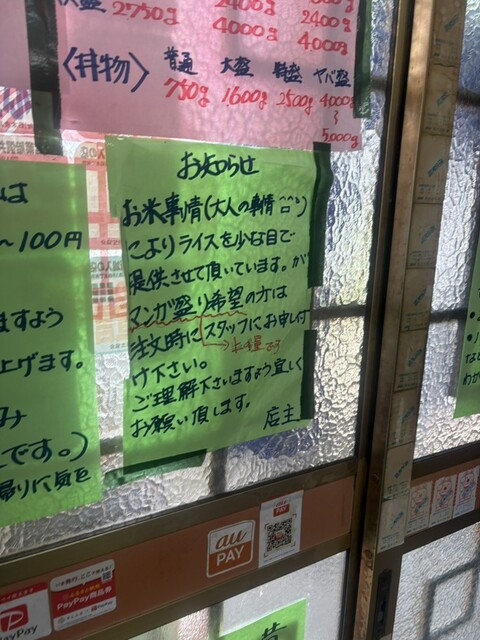 2750g
2400g
4000g
2400g
4000g
〈丼物〉
普通 大盛 特盛 ヤバ盛
750g 1600g 2500g 4000g
〜
5,000g
お知らせ
お米事情(大人の事情
によりライスを少な目で
提供させて頂いています。が
マンガ盛り希望の方は
注文時にスタッフにお申し付
け下さい。
ご理解下さいますよう宜しく
お願い頂します。
店主
は
〜100円
ますよう
上げます。
み
です。)
帰りに気を
au
PAY
PAY
PayPay商品券
PayPay